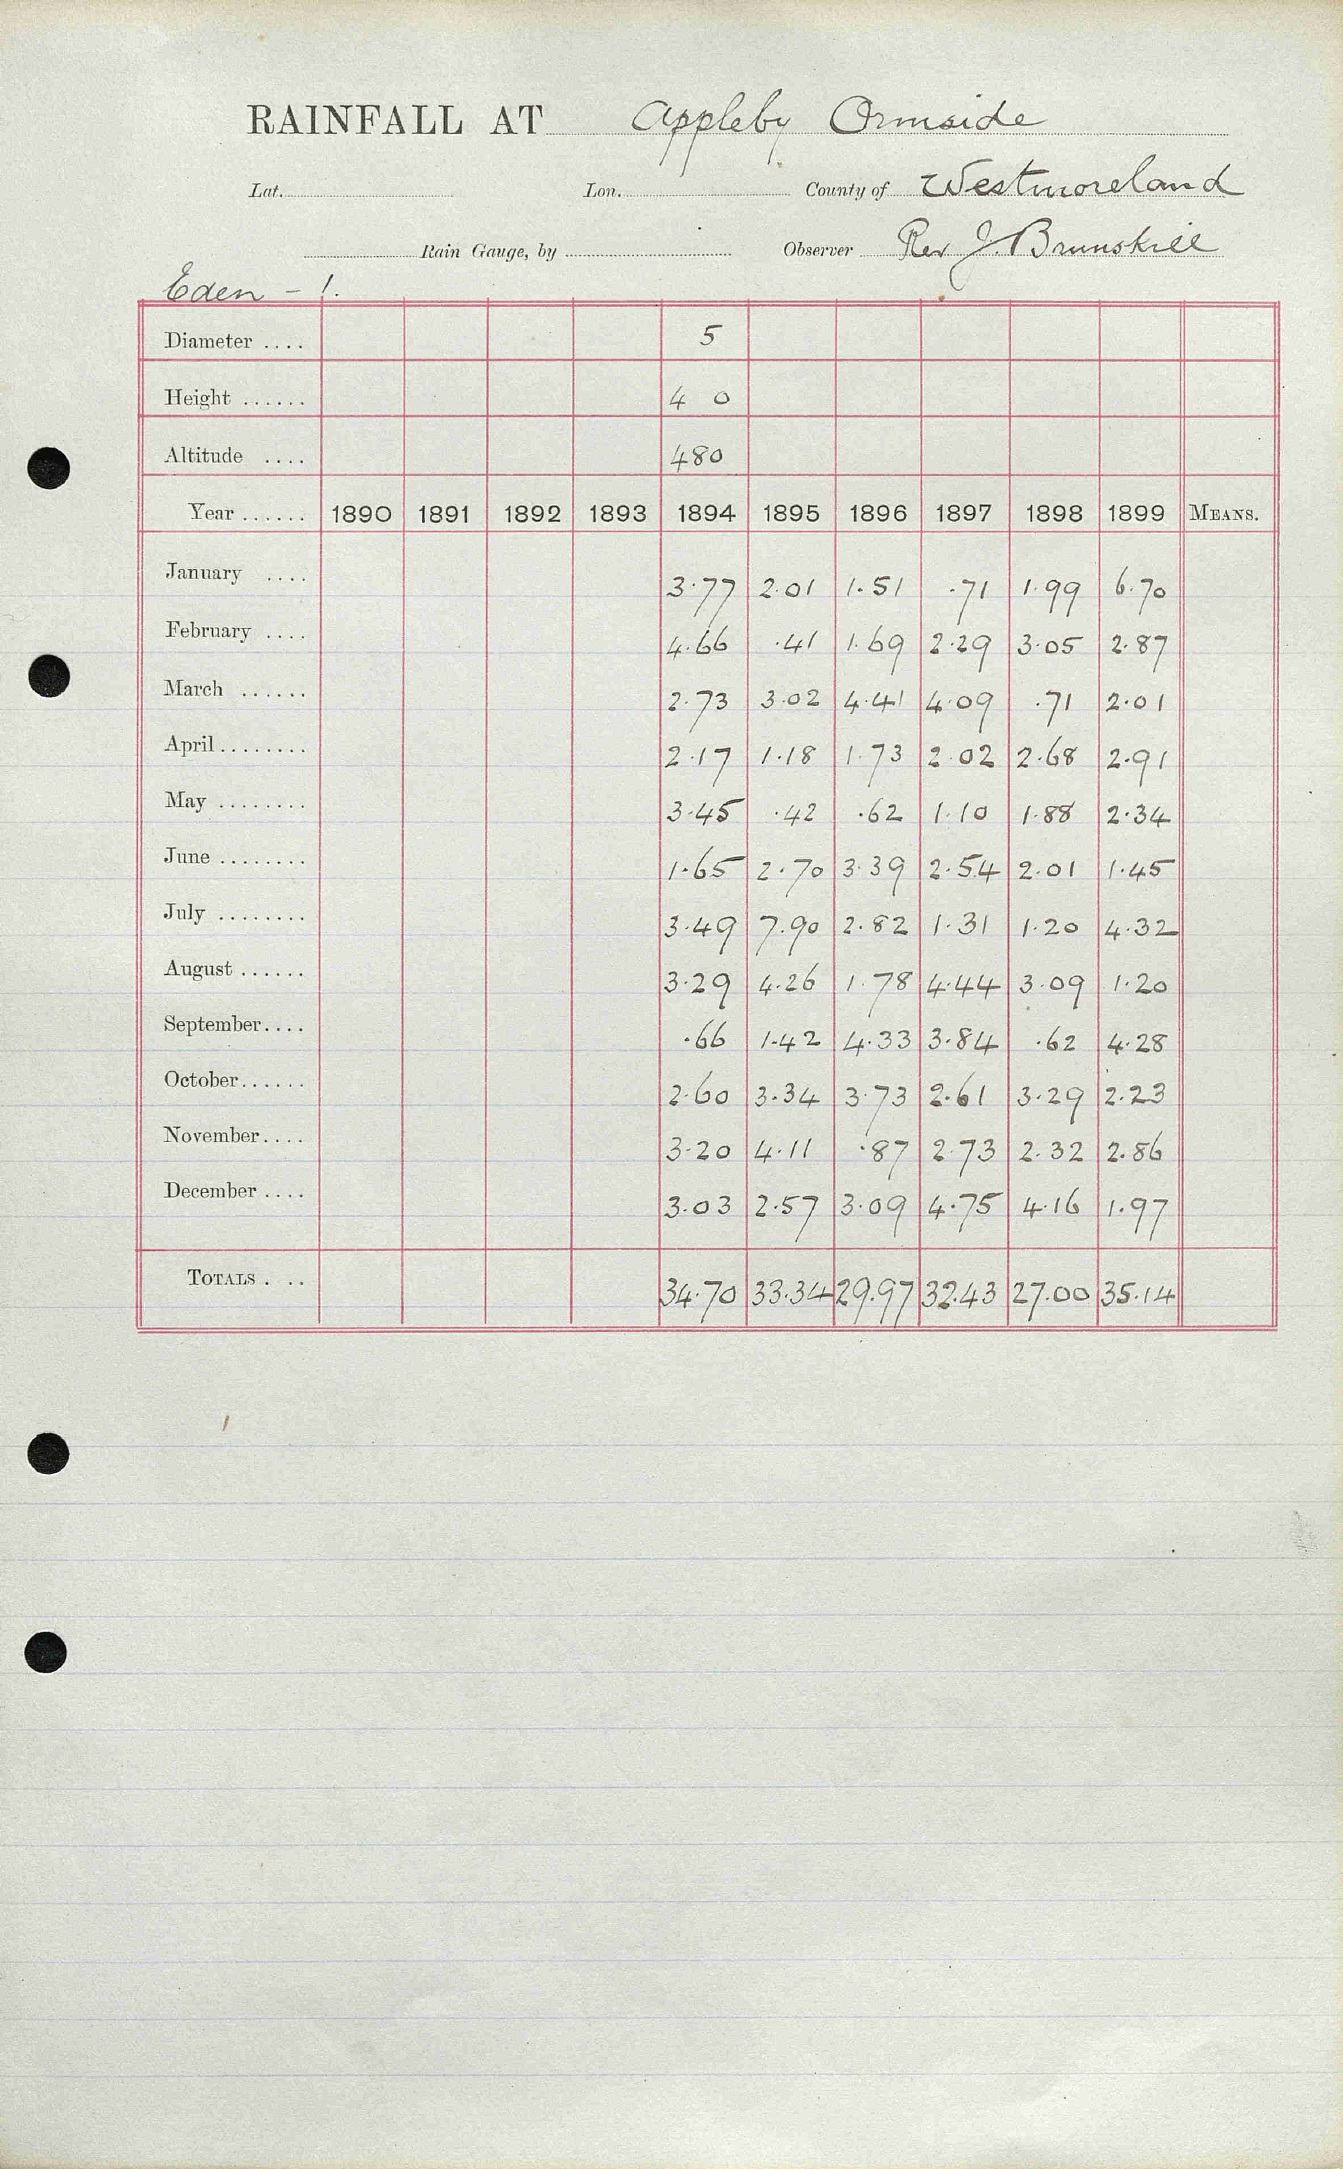 RAINFALL AT Appleby Ormside
Lat. Lon. County of Westmoreland
Rain Gauge, by Observer Rev J. Brunskill
Eden - 1.
Diameter .... 5
Height ...... 4 0
Altitude .... 480
Year ...... 1890 1891 1892 1893 1894 1895 1896 1897 1898 1899 MEANS.
January .... 3.77 2.01 1.51 .71 1.99 6.70
February .... 4.66 .41 1.69 2.29 3.05 2.87
March ...... 2.73 3.02 4.41 4.09 .71 2.01
April ........ 2.17 1.18 1.73 2.02 2.68 2.91
May ........ 3.45 .42 .62 1.10 1.88 2.34
June ........ 1.65 2.70 3.39 2.54 2.01 1.45
July ........ 3.49 7.90 2.82 1.31 1.20 4.32
August ...... 3.29 4.26 1.78 4.44 3.09 1.20
September.... .66 1.42 4.33 3.84 .62 4.28
October...... 2.60 3.34 3.73 2.61 3.29 2.23
November.... 3.20 4.11 .87 2.73 2.32 2.86
December .... 3.03 2.57 3.09 4.75 4.16 1.97
TOTALS . .. 34.70 33.34 29.97 32.43 27.00 35.14